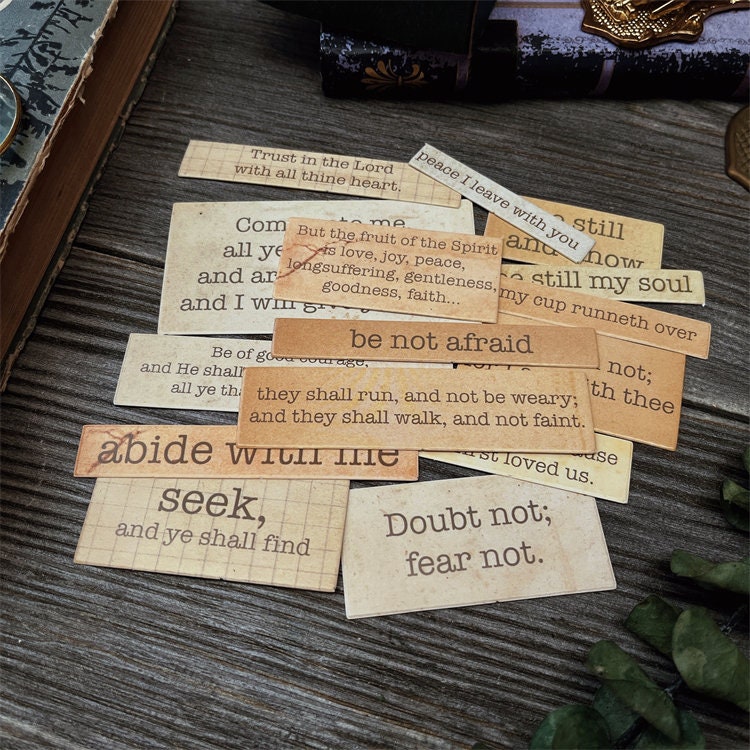 Trust in the Lord
with all thine heart.
peace I leave with you
still
and
still my soul
my cup runneth over
to me
all ye
and
and I will
But the fruit of the Spirit
is love, joy, peace,
longsuffering, gentleness,
goodness, faith...
be not afraid
not;
with thee
Be of good courage,
and He shall
all ye
they shall run, and not be weary;
and they shall walk, and not faint.
first loved us.
abide with me
seek,
and ye shall find
Doubt not;
fear not.